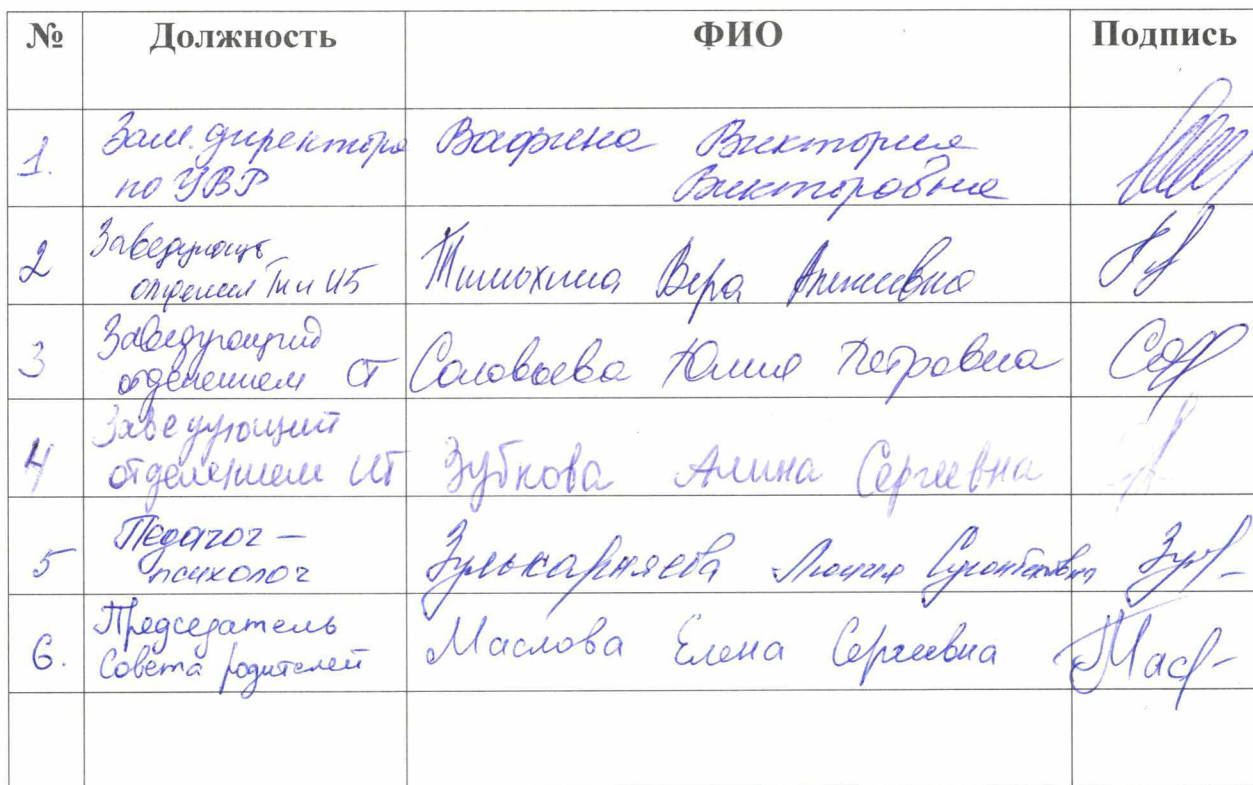 № Должность ФИО Подпись
1. Зам. директора Вафина Виктория
по УВР Викторовна
2 Заведующ Тимохина Вера
отделен
3 Заведующий
отделением СТ Соловьева Юлия Петровна
4 Заведующий
отделением ИТ Зубкова Алина Сергеевна
5 Педагог –
психолог Зулькарняева
6. Председатель
Совета родителей Маслова Елена Сергеевна